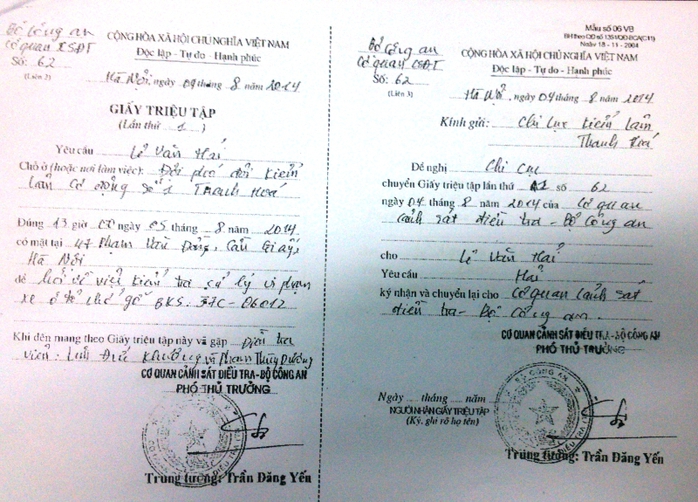 Bộ Công an
Cơ quan CSĐT
Số: 62
(Liên 2)
CỘNG HÒA XÃ HỘI CHỦ NGHĨA VIỆT NAM
Độc lập - Tự do - Hạnh phúc
Hà Nội, ngày 04 tháng 8 năm 2014
GIẤY TRIỆU TẬP
(Lần thứ 1)
Yêu cầu Lê Văn Hải
Chỗ ở (hoặc nơi làm việc): Đội phó đội kiểm
lâm cơ động số 1 Thanh Hoá
Đúng 13 giờ 00 ngày 05 tháng 8 năm 2014
có mặt tại 47 Phạm Văn Đồng, Cầu Giấy,
Hà Nội
để hỏi về việc kiểm tra, xử lý vi phạm
xe ô tô chở gỗ BKS:
Khi đến mang theo Giấy triệu tập này và gặp Điều tra
viên: và Phạm Thùy Dương
CƠ QUAN CẢNH SÁT ĐIỀU TRA-BỘ CÔNG AN
PHÓ THỦ TRƯỞNG
Trung tướng: Trần Đăng Yến
Mẫu số 06 VB
BH theo QĐ số
Ngày 18 - 11 - 2004
Bộ Công an
Cơ quan CSĐT
Số: 62
(Liên 3)
CỘNG HÒA XÃ HỘI CHỦ NGHĨA VIỆT NAM
Độc lập - Tự do - Hạnh phúc
Hà Nội, ngày 04 tháng 8 năm 2014
Kính gửi: Chi cục kiểm lâm
Thanh Hoá
Đề nghị Chi cục
chuyển Giấy triệu tập lần thứ 1 số 62
ngày 04 tháng 8 năm 2014 của Cơ quan
cảnh sát điều tra - Bộ Công an
cho Lê Văn Hải
Yêu cầu Hải
ký nhận và chuyển lại cho Cơ quan cảnh sát
điều tra - Bộ Công an.
CƠ QUAN CẢNH SÁT ĐIỀU TRA-BỘ CÔNG AN
PHÓ THỦ TRƯỞNG
Ngày tháng năm
NGƯỜI NHẬN GIẤY TRIỆU TẬP
(Ký, ghi rõ họ tên)
Trung tướng: Trần Đăng Yến